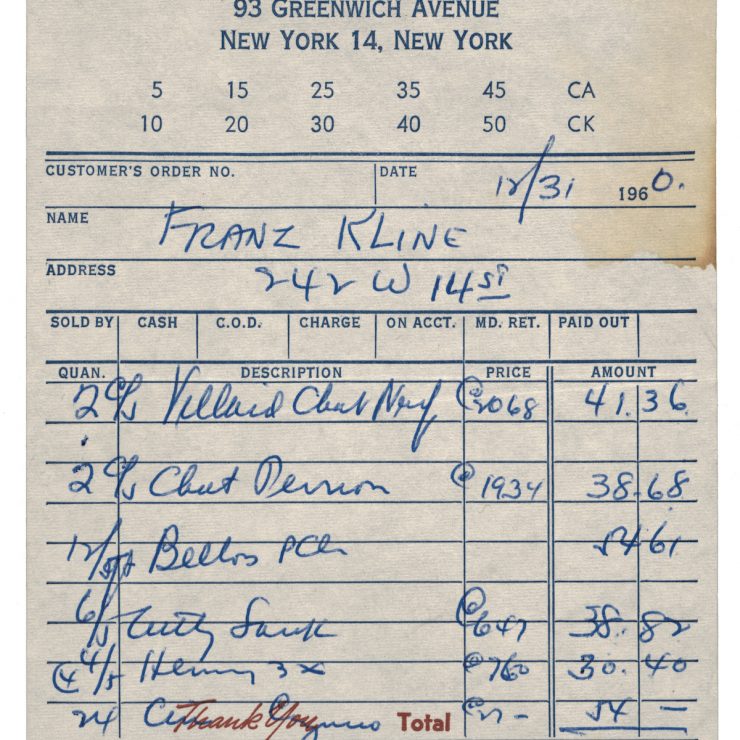 93 GREENWICH AVENUE
NEW YORK 14, NEW YORK
5 15 25 35 45 CA
10 20 30 40 50 CK
CUSTOMER'S ORDER NO. DATE 12/31 1960.
NAME FRANZ KLINE
ADDRESS 242 W 14 ST
SOLD BY CASH C.O.D. CHARGE ON ACCT. MD. RET. PAID OUT
QUAN. DESCRIPTION PRICE AMOUNT
2 c/s Chat Neuf @ 2068 41.36
2 c/s Chat @ 1934 38.68
12/ Bellows 54 61
6/5 Cutty Sark @ 647 38.82
4/5 Henny 3x @ 760 30.40
24 Thank You Total @ 27 - 54 -